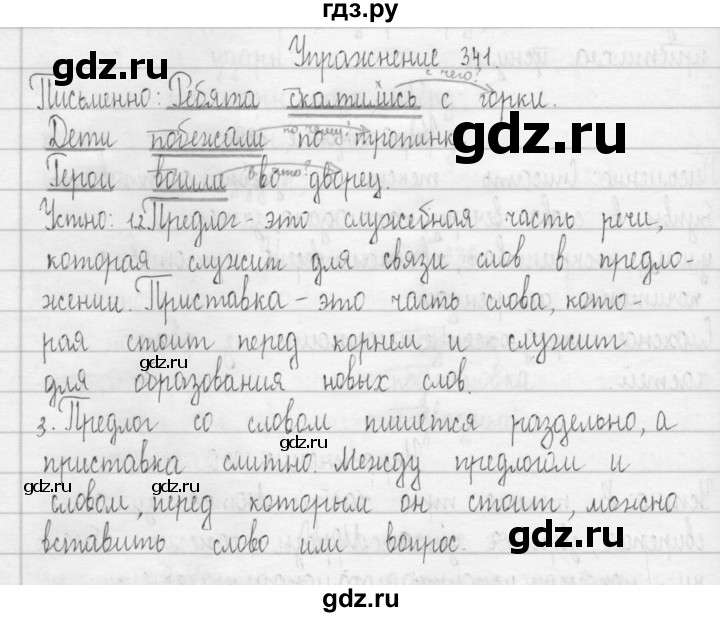 гдз.ру
Упражнение 341.
с чего?
Письменно: Ребята скатились с горки.
по чему?
Дети побежали по тропинк
во что?
Герои вошли во дворец.
Устно: 1.2. Предлог - это служебная часть речи,
которая служит для связи слов в предло-
жении. Приставка - это часть слова, кото-
рая стоит перед корнем и служит
для образования новых слов.
3. Предлог со словом пишется раздельно, а
приставка слитно. Между предлогом и
словом, перед которым он стоит, можно
вставить слово или вопрос.
gdz.ru
gdz.ru
gdz.ru
gdz.ru
gdz.ru
gdz.ru
gdz.ru
gdz.ru
gdz.ru
gdz.ru